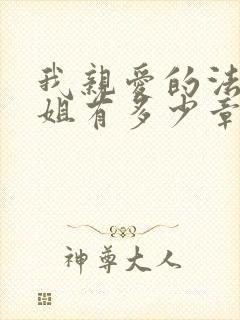 我親愛的法
姐有多少章
神尊大人